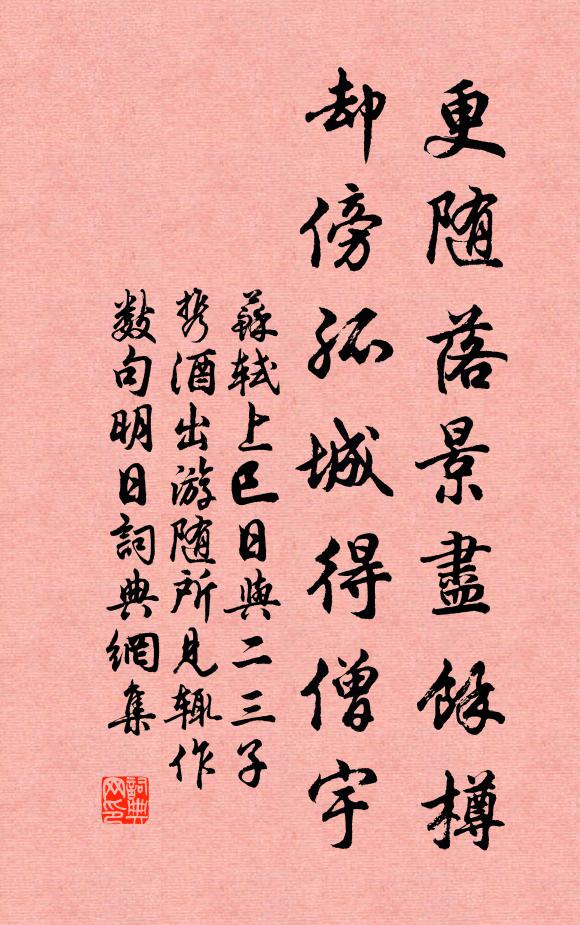 更随落景盡餘樽
却傍孤城得僧宇
蘇軾上巳日與二三子
携酒出游随所見輒作
数句明日詞典網集
詞典网印